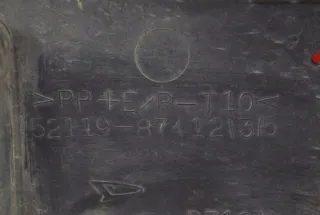 >PP+E/P-T10<
52119-87412